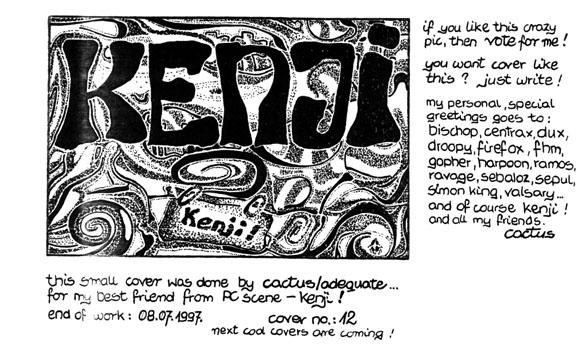 KENJI
Kenji!
if you like this crazy
pic, then vote for me!
you want cover like
this? just write!
my personal, special
greetings goes to:
bischop, centrax, dux,
droopy, firefox, fhm,
gopher, harpoon, ramos,
ravage, sebaloz, sepul,
simon king, valsary...
and of course kenji!
and all my friends.
cactus
this small cover was done by cactus/adequate...
for my best friend from PC scene - Kenji!
end of work: 08.07.1997.
cover no.: 12
next cool covers are coming!